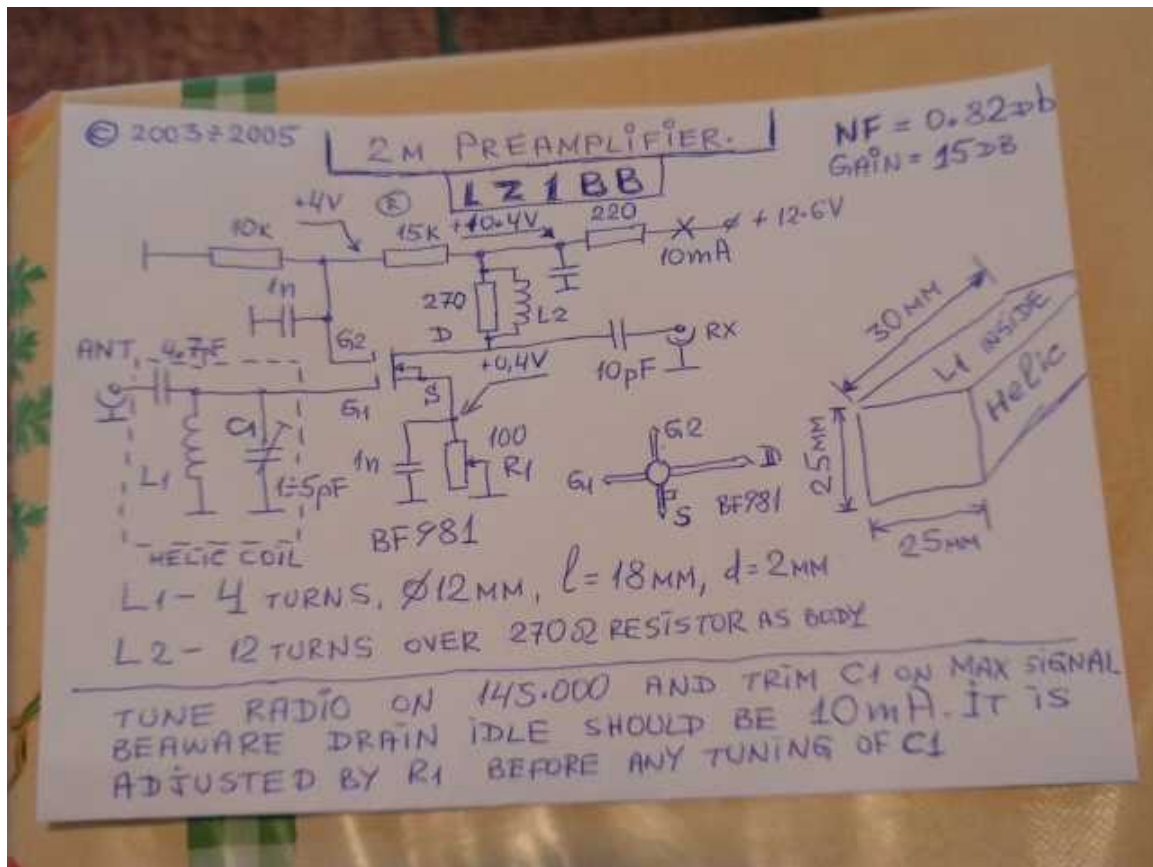 © 2003÷2005
2M PREAMPLIFIER.
LZ1BB
NF = 0.82Db
GAIN = 15DB
+4V
10K
15K
+10.4V
220
+12.6V
10mA
1n
270
L2
D
G2
ANT.
4.7pF
+0,4V
10pF
RX
S
G1
L1
C1
1÷5pF
1n
100
R1
HELIC COIL
BF981
G2
G1
D
S
BF981
30MM
L1 INSIDE
Helic
25MM
25MM
L1- 4 TURNS, Ø12MM, l=18MM, d=2MM
L2- 12 TURNS OVER 270Ω RESISTOR AS BODY
TUNE RADIO ON 145.000 AND TRIM C1 ON MAX SIGNAL
BEAWARE DRAIN IDLE SHOULD BE 10mA. IT IS
ADJUSTED BY R1 BEFORE ANY TUNING OF C1